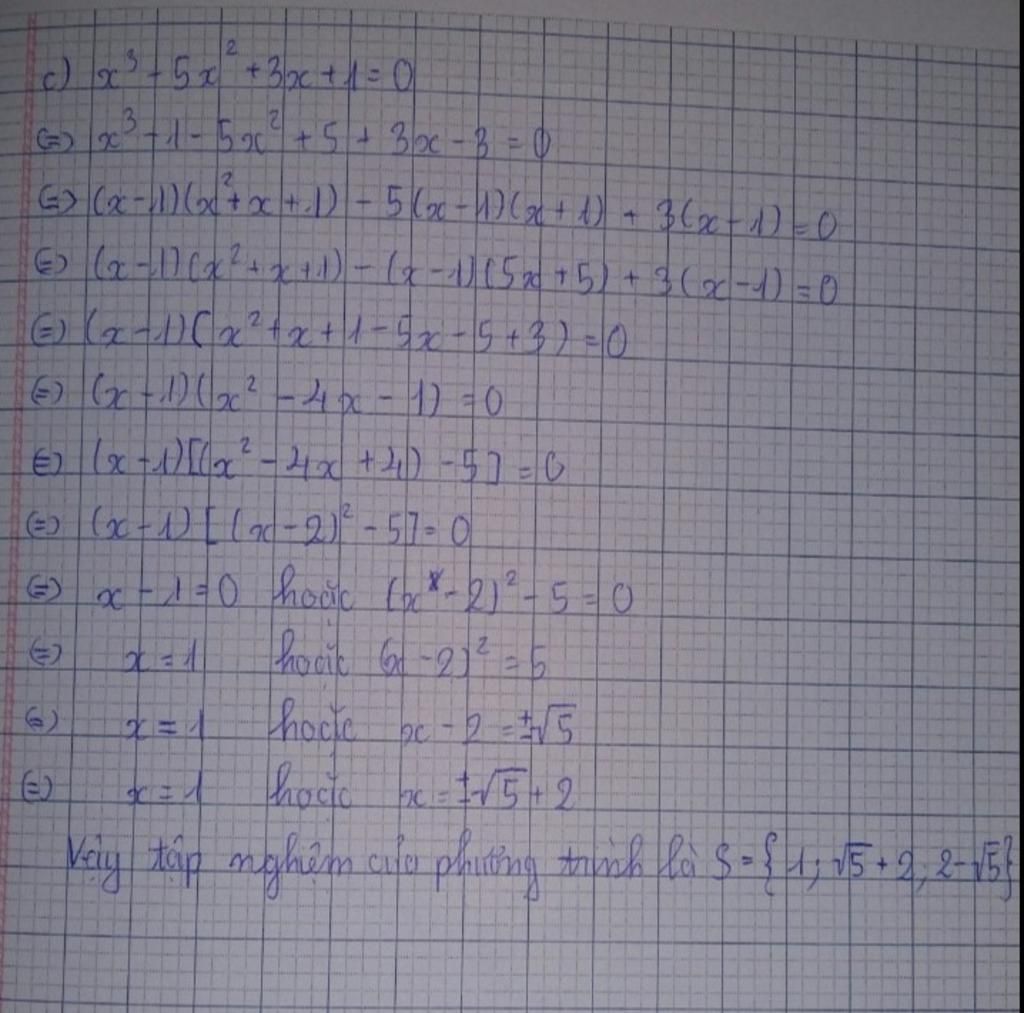 c) x³ - 5x² + 3x + 1 = 0
(=) x³ - 1 - 5x² + 5 + 3x - 3 = 0
(=) (x-1)(x²+x+1) - 5(x-1)(x+1) + 3(x-1) = 0
(=) (x-1)(x²+x+1) - (x-1)(5x+5) + 3(x-1) = 0
(=) (x-1)(x²+x+1-5x-5+3) = 0
(=) (x-1)(x² - 4x - 1) = 0
(=) (x-1)[(x² - 4x + 4) - 5] = 0
(=) (x-1)[(x-2)² - 5] = 0
(=) x - 1 = 0 hoặc (x - 2)² - 5 = 0
(=) x = 1 hoặc (x - 2)² = 5
(=) x = 1 hoặc x - 2 = ±√5
(=) x = 1 hoặc x = ±√5 + 2
Vậy tập nghiệm của phương trình là S = {1; √5 + 2; 2-√5}